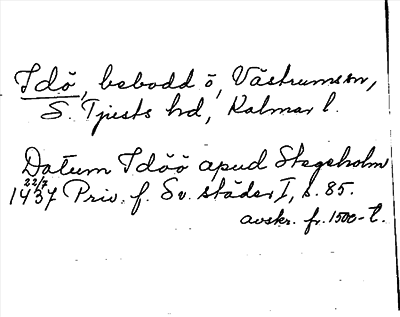 Idö, bebodd ö, Västrums sn,
S. Tjusts hd, Kalmar l.
Datum Idöö apud Stegeholm
22/7 1437 Priv. f. Sv. städer I, s. 85.
avskr. fr. 1500-t.